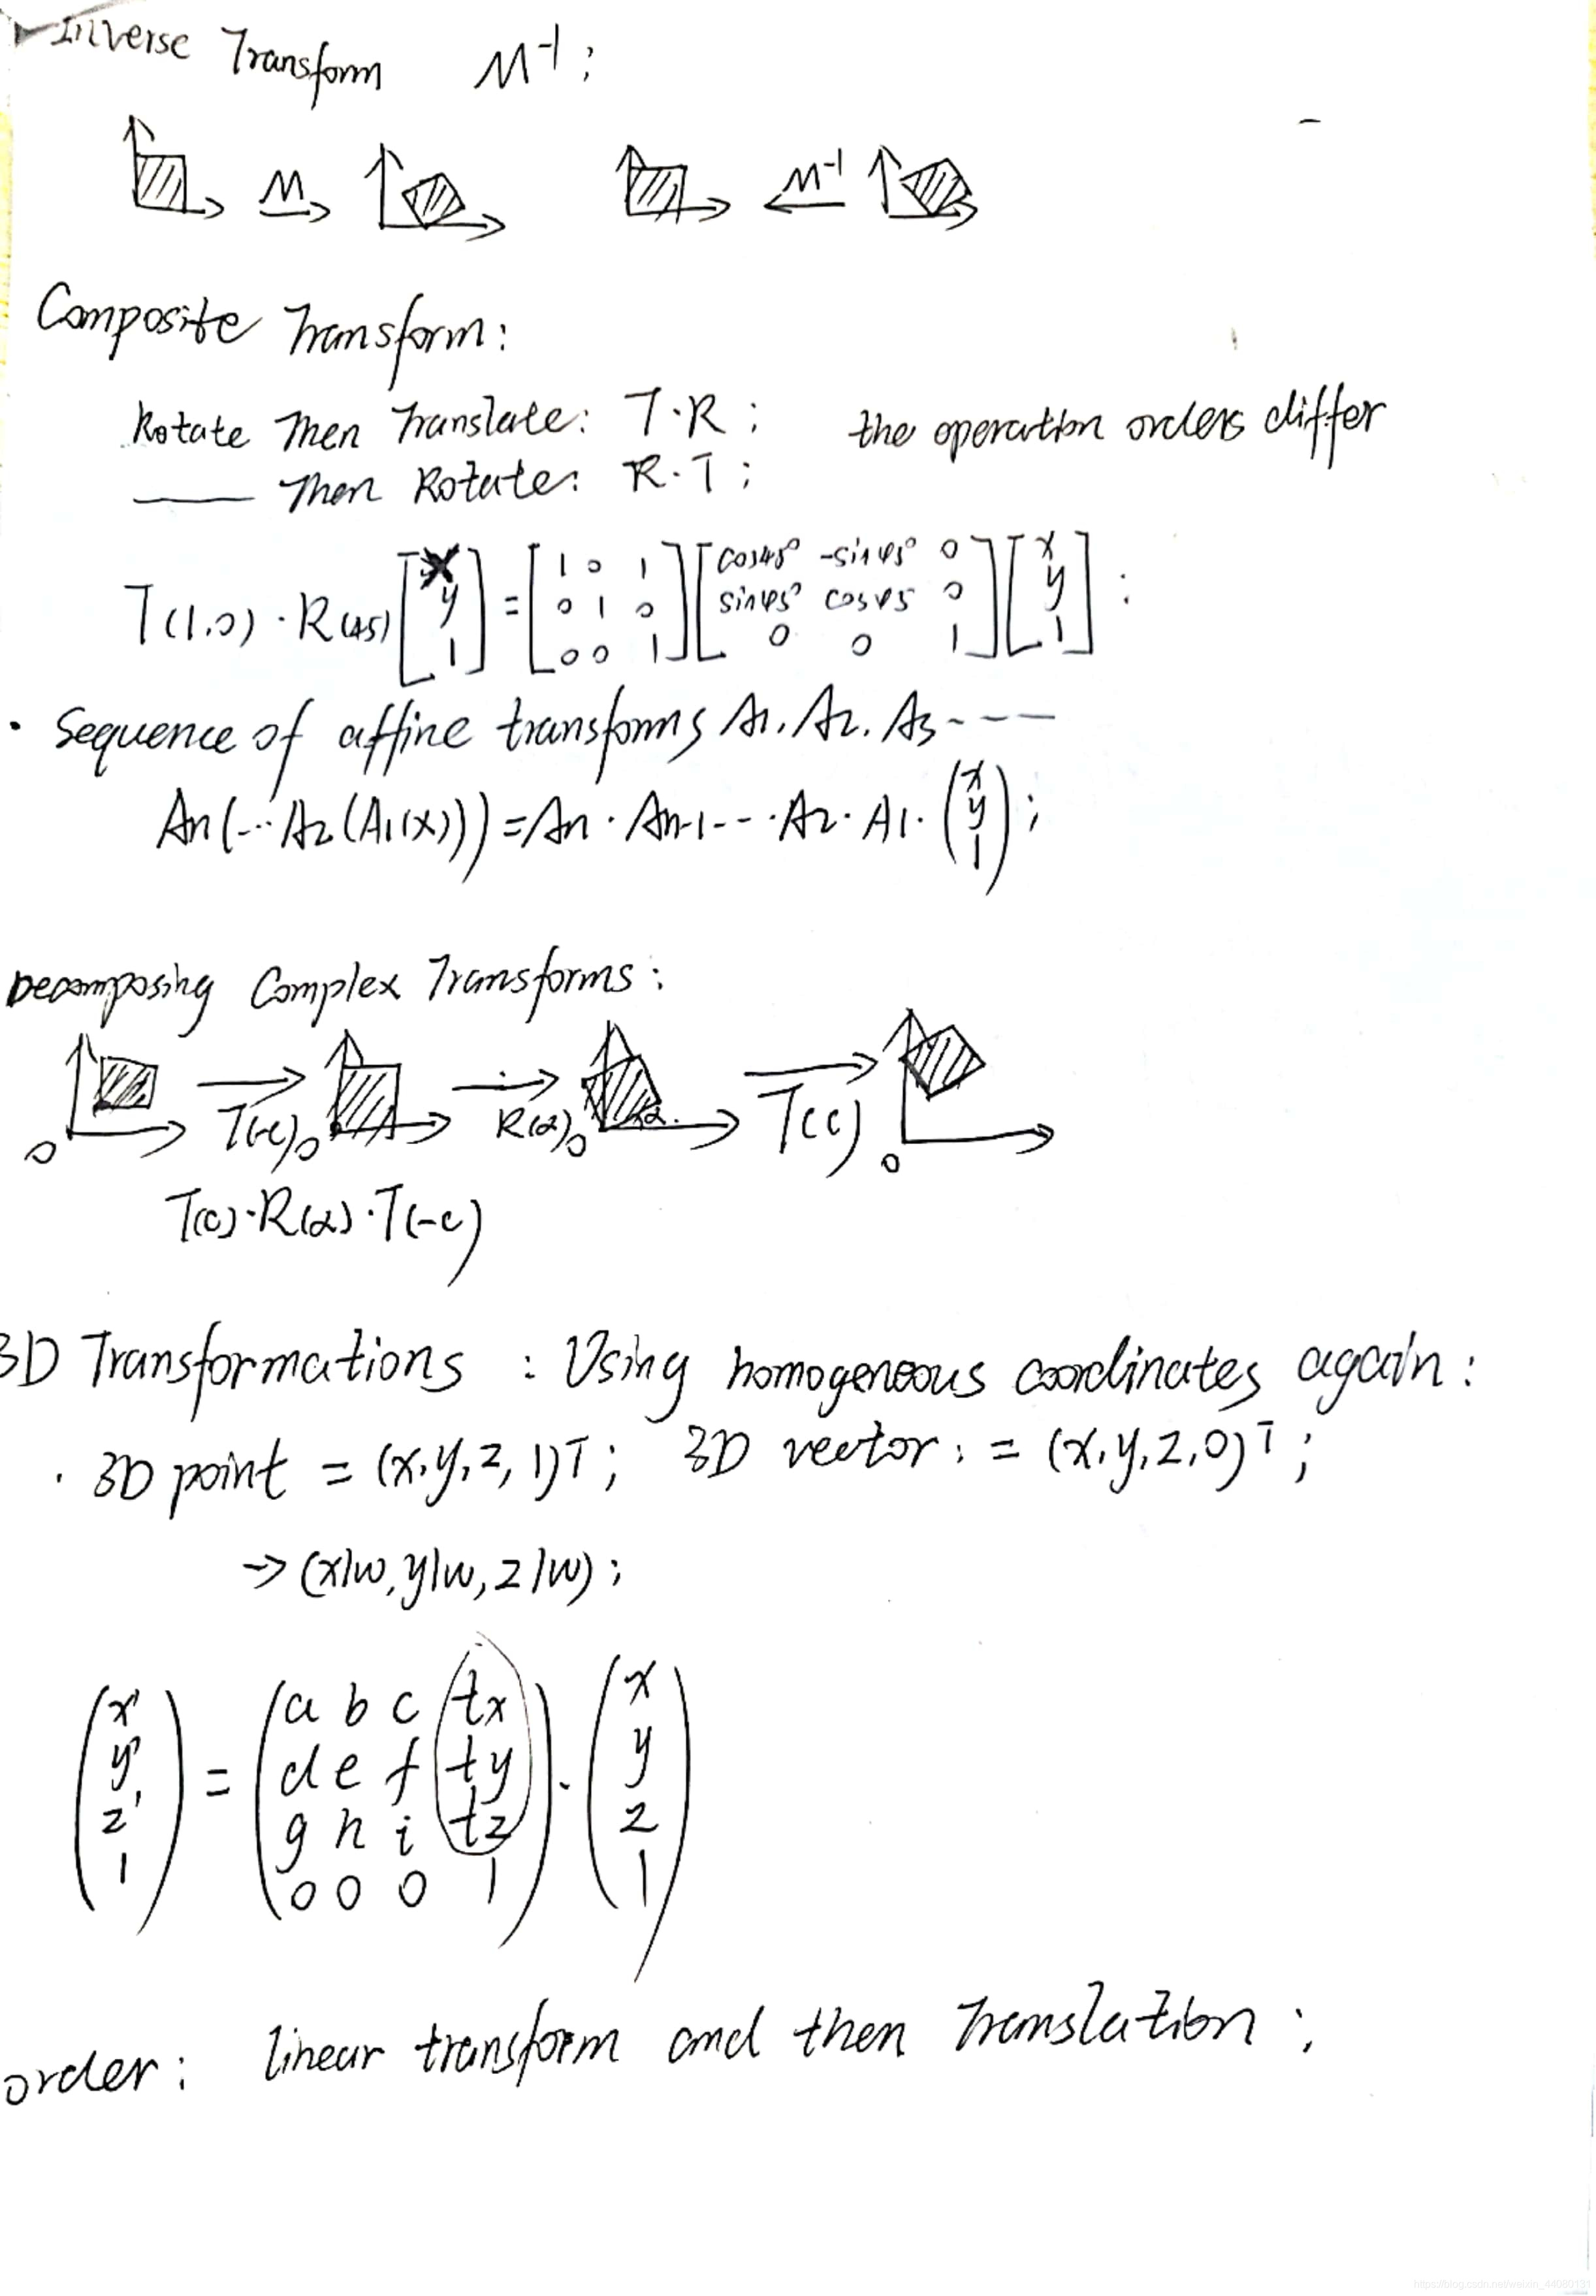 Inverse Transform M⁻¹;
M M⁻¹
Composite Transform:
Rotate Then Translate: T·R; the operation orders differ
—— Then Rotate: R·T;
T(1,0)·R(45)[x y 1] = [1 0 1; 0 1 0; 0 0 1][cos45° -sin45° 0; sin45° cos45 0; 0 0 1][x y 1]:
· Sequence of affine transforms A1. A2. A3 ----
An(...A2(A1(x))) = An · An-1 --- · A2 · A1 · (x y 1);
Decomposing Complex Transforms:
0 T(-c) 0 R(α) 0 α. T(c) 0
T(c)·R(α)·T(-c)
3D Transformations : Using homogeneous coordinates again:
· 3D point = (x,y,z,1)T; 3D vector: = (x,y,z,0)T;
→ (x/w, y/w, z/w);
(x' y' z' 1) = (a b c tx; d e f ty; g h i tz; 0 0 0 1) · (x y z 1)
order: linear transform and then Translation;
https://blog.csdn.net/weixin_44080131